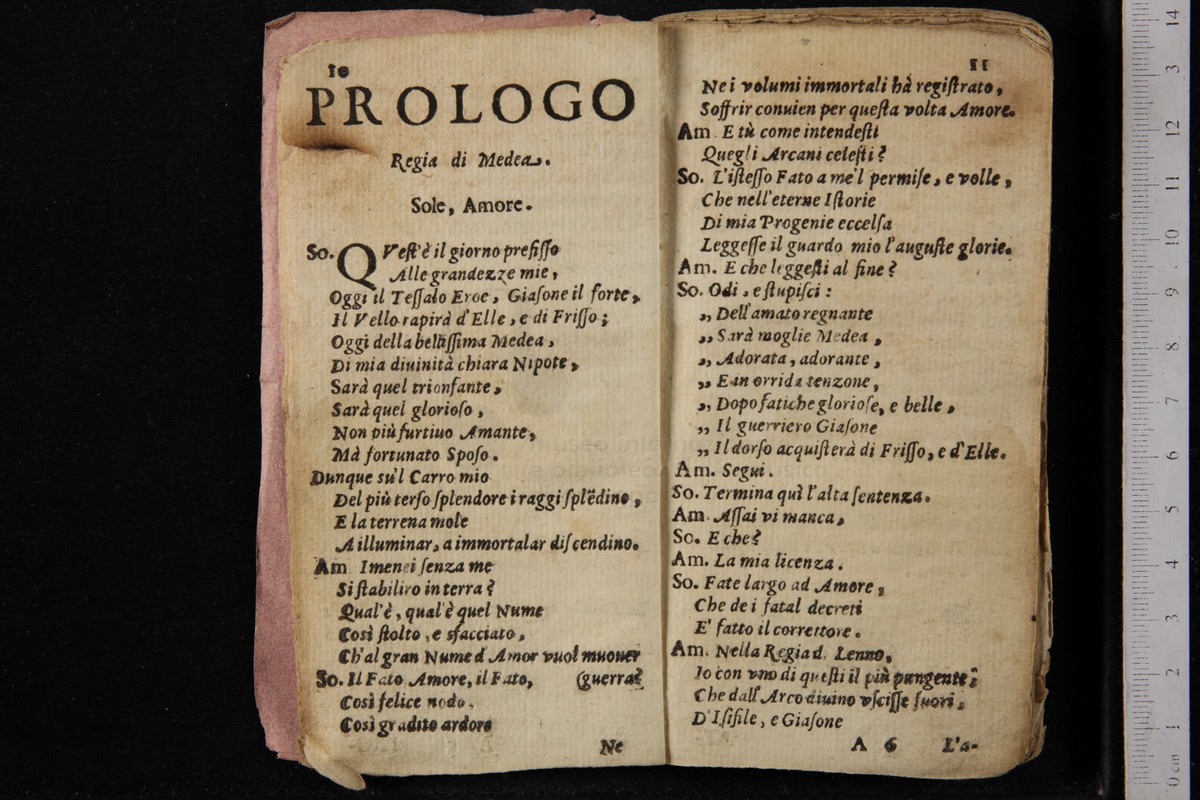 10
PROLOGO
Regia di Medea.
Sole, Amore.
So. QVest'è il giorno prefisso
Alle grandezze mie,
Oggi il Tessalo Eroe, Giasone il forte,
Il Vello rapirà d'Elle, e di Frisso;
Oggi della bellissima Medea,
Di mia diuinità chiara Nipote,
Sarà quel trionfante,
Sarà quel glorioso,
Non più furtiuo Amante,
Mà fortunato Sposo.
Dunque su'l Carro mio
Del più terso splendore i raggi splẽdino,
E la terrena mole
A illuminar, a immortalar discendino.
Am Imenei senza me
Si stabiliro in terra?
Qual'è, qual'è quel Nume
Così stolto, e sfacciato,
Ch'al gran Nume d'Amor vuol muouer
So. Il Fato Amore, il Fato, (guerra?
Così felice nodo,
Così gradito ardore
Ne
11
Ne i volumi immortali hà registrato,
Soffrir conuien per questa volta Amore.
Am. E tù come intendesti
Quegli Arcani celesti?
So. L'istesso Fato a me'l permise, e volle,
Che nell'eterne Istorie
Di mia Progenie eccelsa
Leggesse il guardo mio l'auguste glorie.
Am. E che leggesti al fine?
So. Odi, e stupisci:
„ Dell'amato regnante
„ Sarà moglie Medea,
„ Adorata, adorante,
„ E in orrida tenzone,
„ Dopo fatiche gloriose, e belle,
„ Il guerriero Giasone
„ Il dorso acquisterà di Frisso, e d'Elle.
Am. Segui.
So. Termina quì l'alta sentenza.
Am. Assai vi manca,
So. E che?
Am. La mia licenza.
So. Fate largo ad Amore,
Che de i fatal decreti
E' fatto il correttore.
Am. Nella Regia d. Lenno,
Io con vno di questi il più pungente,
Che dall'Arco diuino vscisse fuori,
D'Isifile, e Giasone
A 6 L'a-